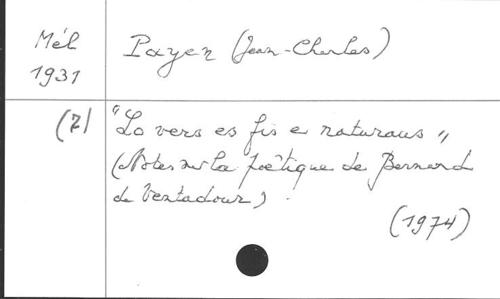 Mél
1931
Payen (Jean-Charles)
(7)
"Lo vers es fis e naturaus"
(Notes sur la poëtique de Bernard
de Ventadour).
(1974)